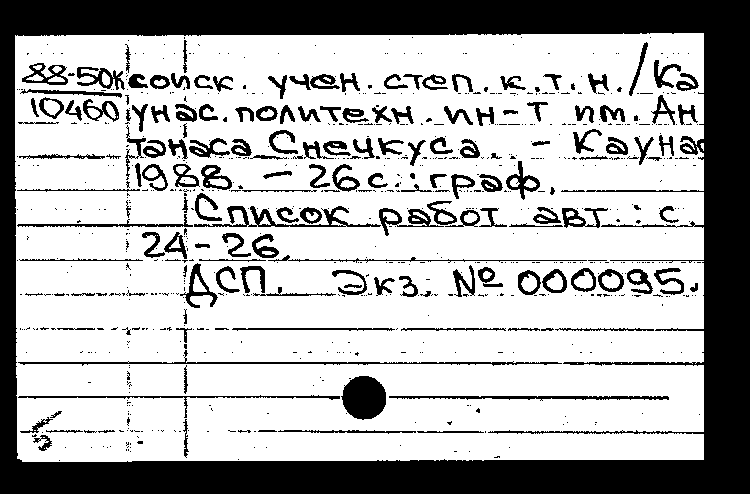 88-50к соиск. учен. степ. к.т.н./Ка
10460 унас. политехн. ин-т им. Ан
танаса Снечкуса. - Каунас
1988. - 26 с.: граф.
Список работ авт.: с.
24-26.
ДСП. Экз. № 000095.
5